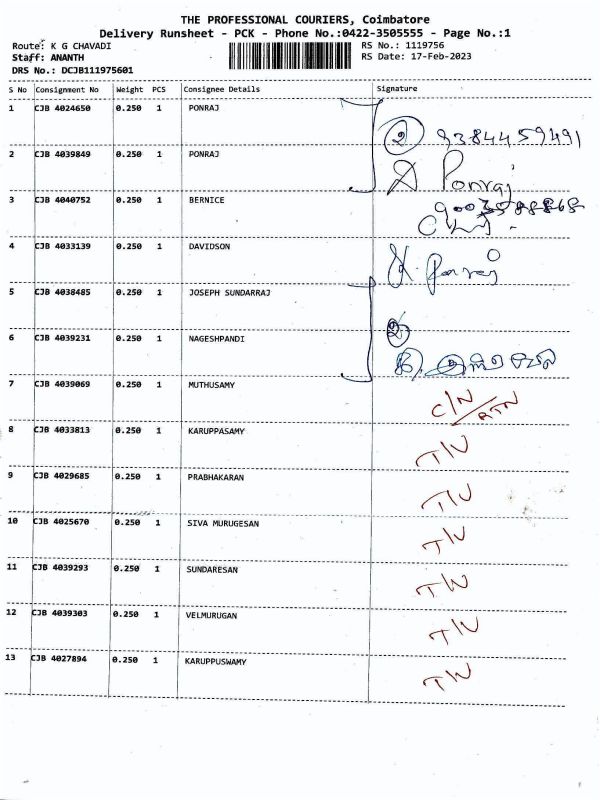 THE PROFESSIONAL COURIERS, Coimbatore
Delivery Runsheet - PCK - Phone No.:0422-3505555 - Page No.:1
Route: K G CHAVADI
RS No.: 1119756
Staff: ANANTH
RS Date: 17-Feb-2023
DRS No.: DCJB111975601
S No Consignment No Weight PCS Consignee Details Signature
1 CJB 4024650 0.250 1 PONRAJ
2 9384459491
2 CJB 4039849 0.250 1 PONRAJ
Ponraj
3 CJB 4040752 0.250 1 BERNICE
4 CJB 4033139 0.250 1 DAVIDSON
5 CJB 4038485 0.250 1 JOSEPH SUNDARRAJ
6 CJB 4039231 0.250 1 NAGESHPANDI
2
7 CJB 4039069 0.250 1 MUTHUSAMY C/N RTN
8 CJB 4033813 0.250 1 KARUPPASAMY
9 CJB 4029685 0.250 1 PRABHAKARAN
10 CJB 4025670 0.250 1 SIVA MURUGESAN
11 CJB 4039293 0.250 1 SUNDARESAN
12 CJB 4039303 0.250 1 VELMURUGAN
13 CJB 4027894 0.250 1 KARUPPUSWAMY